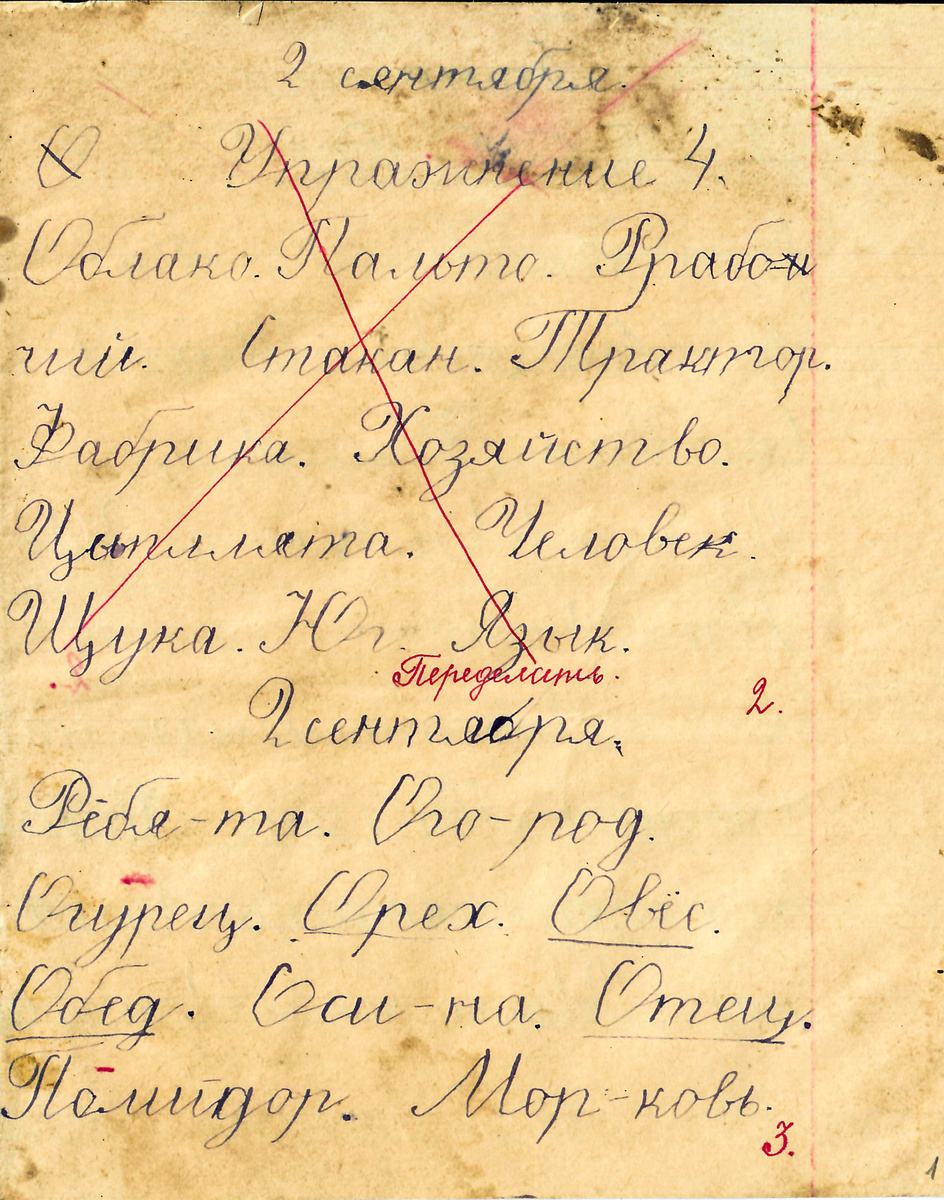 2 сентября.
Упражнение 4.
Облако. Пальто. Ррабо-
чий. Стакан. Трактор.
Фабрика. Хозяйство.
Цыплята. Человек.
Щука. Юг. Язык.
Переделать.
2.
2 сентября.
Рёбя-та. Ого-род.
Огурец. Орех. Овёс.
Обед. Оси-на. Отец.
Помидор. Мор-ковь.
3.
1